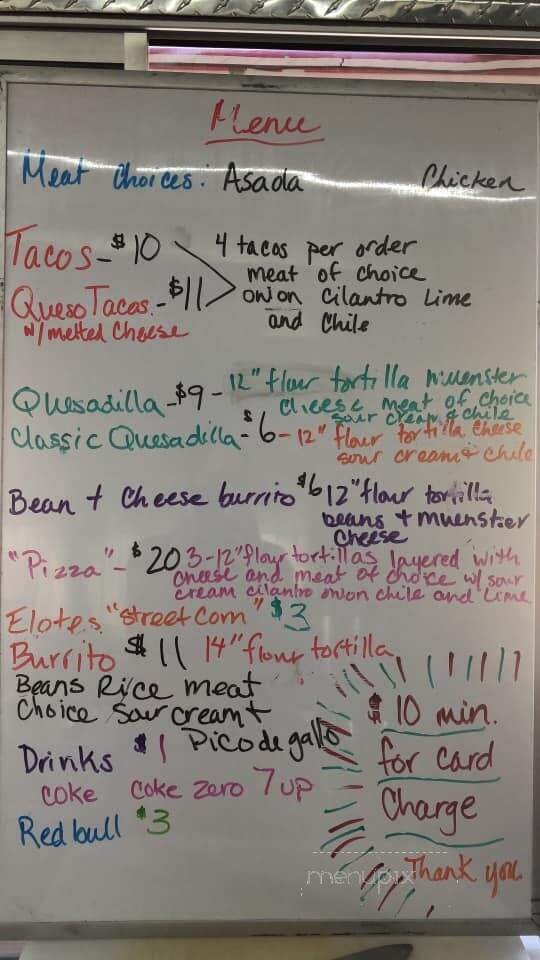 Menu
Meat Choices: Asada Chicken
Tacos - $10
Queso Tacos - $11
w/melted Cheese
4 tacos per order
meat of choice
onion cilantro Lime
and Chile
Quesadilla - $9 - 12" flour tortilla muenster
cheese meat of choice
sour cream & chile
Classic Quesadilla - $6 - 12" flour tortilla cheese
sour cream + chile
Bean + Cheese burrito $6 12" flour tortilla
beans + muenster
cheese
"Pizza" - $20 3-12" flour tortillas layered with
cheese and meat of choice w/ sour
cream cilantro onion chile and Lime
Elotes "street corn" $3
Burrito $11 14" flour tortilla
Beans Rice meat
Choice Sour cream +
Pico de gallo
Drinks $1
Coke Coke zero 7up
Red bull $3
$10 min.
for card
Charge
Thank you.
menupix